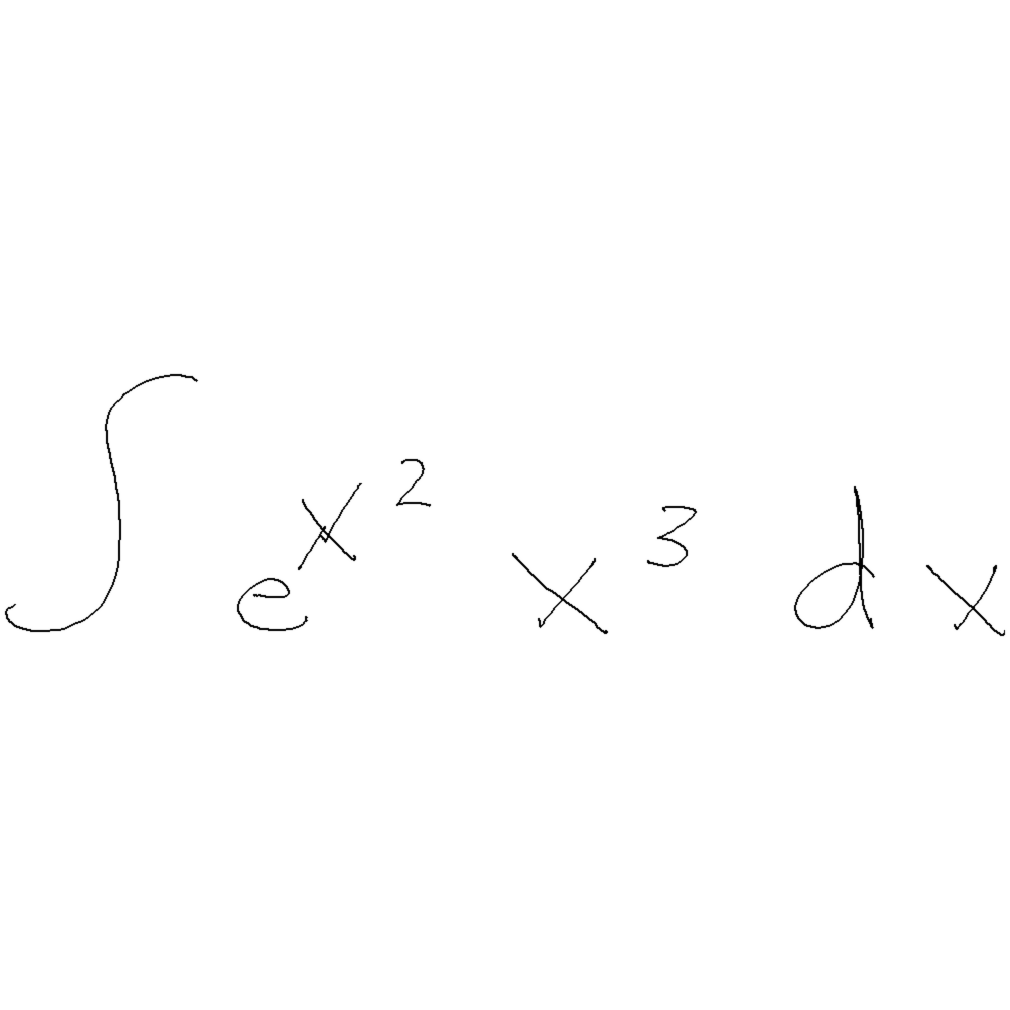 ∫ e^{x^2} x^3 dx